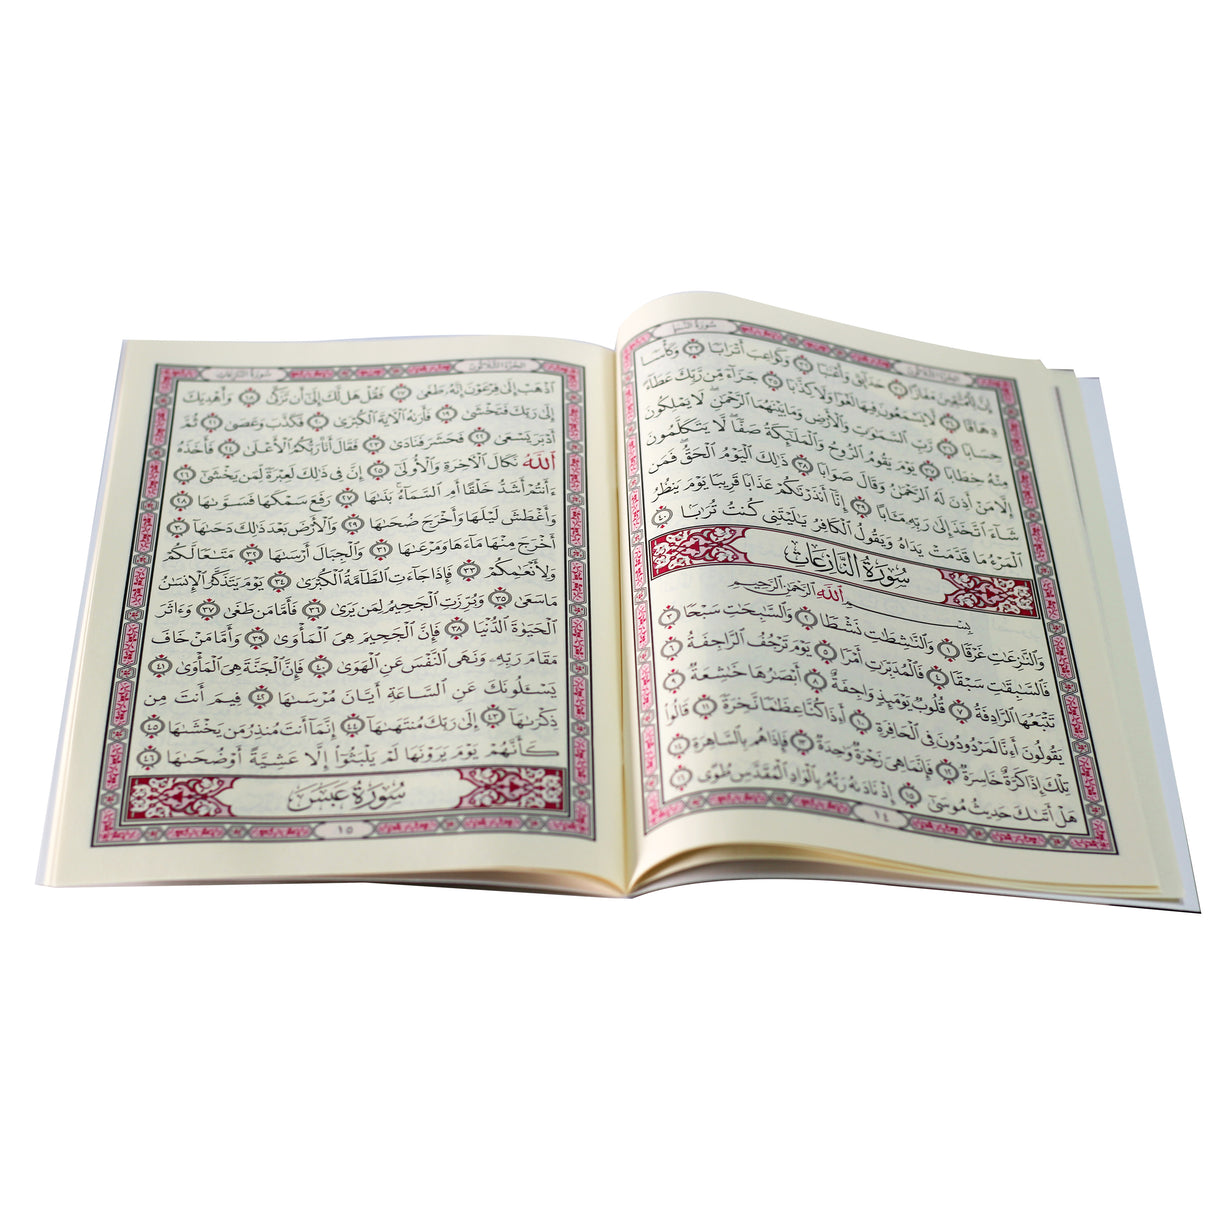 سُورَةُ النَّبَإِ
الجُزْءُ الثَّلَاثُونَ
إِنَّ لِلْمُتَّقِينَ مَفَازًا ٣١ حَدَآئِقَ وَأَعْنَٰبًا ٣٢ وَكَوَاعِبَ أَتْرَابًا ٣٣ وَكَأْسًا
دِهَاقًا ٣٤ لَّا يَسْمَعُونَ فِيهَا لَغْوًا وَلَا كِذَّٰبًا ٣٥ جَزَآءً مِّن رَّبِّكَ عَطَآءً
حِسَابًا ٣٦ رَّبِّ ٱلسَّمَٰوَٰتِ وَٱلْأَرْضِ وَمَا بَيْنَهُمَا ٱلرَّحْمَٰنِ لَا يَمْلِكُونَ
مِنْهُ خِطَابًا ٣٧ يَوْمَ يَقُومُ ٱلرُّوحُ وَٱلْمَلَٰٓئِكَةُ صَفًّا لَّا يَتَكَلَّمُونَ
إِلَّا مَنْ أَذِنَ لَهُ ٱلرَّحْمَٰنُ وَقَالَ صَوَابًا ٣٨ ذَٰلِكَ ٱلْيَوْمُ ٱلْحَقُّ فَمَن
شَآءَ ٱتَّخَذَ إِلَىٰ رَبِّهِۦ مَـَٔابًا ٣٩ إِنَّآ أَنذَرْنَٰكُمْ عَذَابًا قَرِيبًا يَوْمَ يَنظُرُ
ٱلْمَرْءُ مَا قَدَّمَتْ يَدَاهُ وَيَقُولُ ٱلْكَافِرُ يَٰلَيْتَنِى كُنتُ تُرَٰبًا ٤٠
سُورَةُ النَّازِعَاتِ
بِسْمِ ٱللَّهِ ٱلرَّحْمَٰنِ ٱلرَّحِيمِ
وَٱلنَّٰزِعَٰتِ غَرْقًا ١ وَٱلنَّٰشِطَٰتِ نَشْطًا ٢ وَٱلسَّٰبِحَٰتِ سَبْحًا ٣
فَٱلسَّٰبِقَٰتِ سَبْقًا ٤ فَٱلْمُدَبِّرَٰتِ أَمْرًا ٥ يَوْمَ تَرْجُفُ ٱلرَّاجِفَةُ ٦
تَتْبَعُهَا ٱلرَّادِفَةُ ٧ قُلُوبٌ يَوْمَئِذٍ وَاجِفَةٌ ٨ أَبْصَٰرُهَا خَٰشِعَةٌ ٩
يَقُولُونَ أَءِنَّا لَمَرْدُودُونَ فِى ٱلْحَافِرَةِ ١٠ أَءِذَا كُنَّا عِظَٰمًا نَّخِرَةً ١١ قَالُوا۟
تِلْكَ إِذًا كَرَّةٌ خَاسِرَةٌ ١٢ فَإِنَّمَا هِىَ زَجْرَةٌ وَٰحِدَةٌ ١٣ فَإِذَا هُم بِٱلسَّاهِرَةِ ١٤
هَلْ أَتَىٰكَ حَدِيثُ مُوسَىٰٓ ١٥ إِذْ نَادَىٰهُ رَبُّهُۥ بِٱلْوَادِ ٱلْمُقَدَّسِ طُوًى ١٦
١٤
سُورَةُ النَّازِعَاتِ
الجُزْءُ الثَّلَاثُونَ
ٱذْهَبْ إِلَىٰ فِرْعَوْنَ إِنَّهُۥ طَغَىٰ ١٧ فَقُلْ هَل لَّكَ إِلَىٰٓ أَن تَزَكَّىٰ ١٨ وَأَهْدِيَكَ
إِلَىٰ رَبِّكَ فَتَخْشَىٰ ١٩ فَأَرَىٰهُ ٱلْءَايَةَ ٱلْكُبْرَىٰ ٢٠ فَكَذَّبَ وَعَصَىٰ ٢١ ثُمَّ
أَدْبَرَ يَسْعَىٰ ٢٢ فَحَشَرَ فَنَادَىٰ ٢٣ فَقَالَ أَنَا۠ رَبُّكُمُ ٱلْأَعْلَىٰ ٢٤ فَأَخَذَهُ
ٱللَّهُ نَكَالَ ٱلْءَاخِرَةِ وَٱلْأُولَىٰٓ ٢٥ إِنَّ فِى ذَٰلِكَ لَعِبْرَةً لِّمَن يَخْشَىٰٓ ٢٦
ءَأَنتُمْ أَشَدُّ خَلْقًا أَمِ ٱلسَّمَآءُ بَنَىٰهَا ٢٧ رَفَعَ سَمْكَهَا فَسَوَّىٰهَا ٢٨
وَأَغْطَشَ لَيْلَهَا وَأَخْرَجَ ضُحَىٰهَا ٢٩ وَٱلْأَرْضَ بَعْدَ ذَٰلِكَ دَحَىٰهَآ ٣٠
أَخْرَجَ مِنْهَا مَآءَهَا وَمَرْعَىٰهَا ٣١ وَٱلْجِبَالَ أَرْسَىٰهَا ٣٢ مَتَٰعًا لَّكُمْ
وَلِأَنْعَٰمِكُمْ ٣٣ فَإِذَا جَآءَتِ ٱلطَّآمَّةُ ٱلْكُبْرَىٰ ٣٤ يَوْمَ يَتَذَكَّرُ ٱلْإِنسَٰنُ
مَا سَعَىٰ ٣٥ وَبُرِّزَتِ ٱلْجَحِيمُ لِمَن يَرَىٰ ٣٦ فَأَمَّا مَن طَغَىٰ ٣٧ وَءَاثَرَ
ٱلْحَيَوٰةَ ٱلدُّنْيَا ٣٨ فَإِنَّ ٱلْجَحِيمَ هِىَ ٱلْمَأْوَىٰ ٣٩ وَأَمَّا مَنْ خَافَ
مَقَامَ رَبِّهِۦ وَنَهَى ٱلنَّفْسَ عَنِ ٱلْهَوَىٰ ٤٠ فَإِنَّ ٱلْجَنَّةَ هِىَ ٱلْمَأْوَىٰ ٤١
يَسْـَٔلُونَكَ عَنِ ٱلسَّاعَةِ أَيَّانَ مُرْسَىٰهَا ٤٢ فِيمَ أَنتَ مِن
ذِكْرَىٰهَآ ٤٣ إِلَىٰ رَبِّكَ مُنتَهَىٰهَآ ٤٤ إِنَّمَآ أَنتَ مُنذِرُ مَن يَخْشَىٰهَا ٤٥
كَأَنَّهُمْ يَوْمَ يَرَوْنَهَا لَمْ يَلْبَثُوٓا۟ إِلَّا عَشِيَّةً أَوْ ضُحَىٰهَا ٤٦
سُورَةُ عَبَسَ
١٥